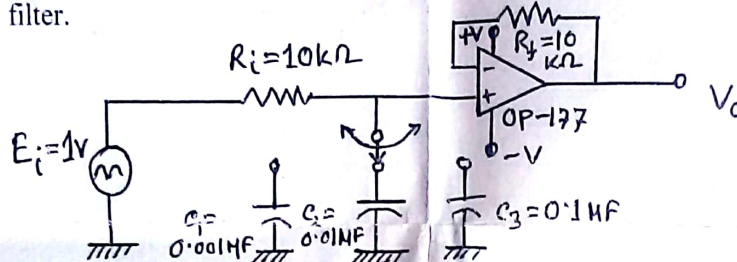 filter.
+V
Rf=10
kΩ
Ri=10kΩ
-
+
OP-177
Vo
Ei=1V
-V
C1=
0.001MF
C2=
0.01MF
C3=0.1MF